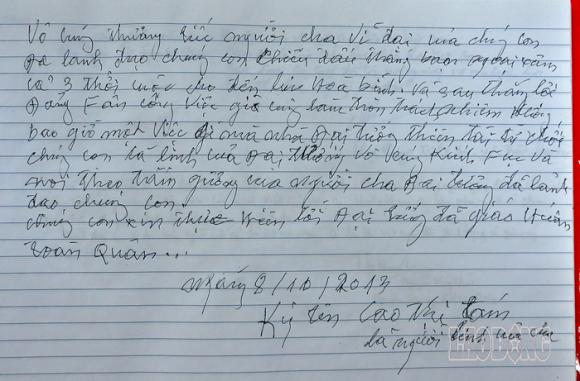 Vô cùng thương tiếc người cha vĩ đại của chúng con
Đã lãnh đạo chúng con chiến đấu thắng bọn ngoại xâm
cả 3 thời cuộc cho đến lúc Hoà bình. Và sau thắng lợi
Đảng Fân công việc gì cũng làm tròn trách nhiệm không
bao giờ một việc gì mà nhà Đại tướng thiên tài từ chối
chúng con là lính của Đại tướng vô cùng Kính Fục và
noi theo tấm gương của người cha Đại tướng đã lãnh
đạo chúng con.
chúng con xin thực hiện lời Đại tướng đã giáo Huấn
toàn Quân...
ngày 8/10/2013
Ký tên Cao Thị
là người lính của cha
LAO ĐỘNG